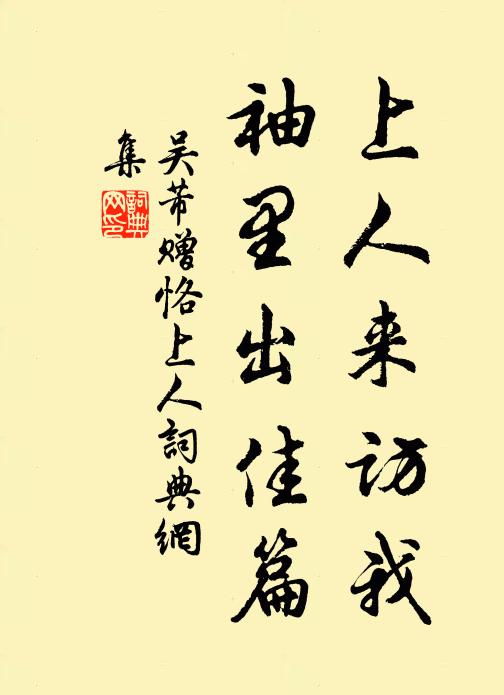 上人来访我
袖里出佳篇
吴芾赠恪上人詞典網
集
詞典
网印